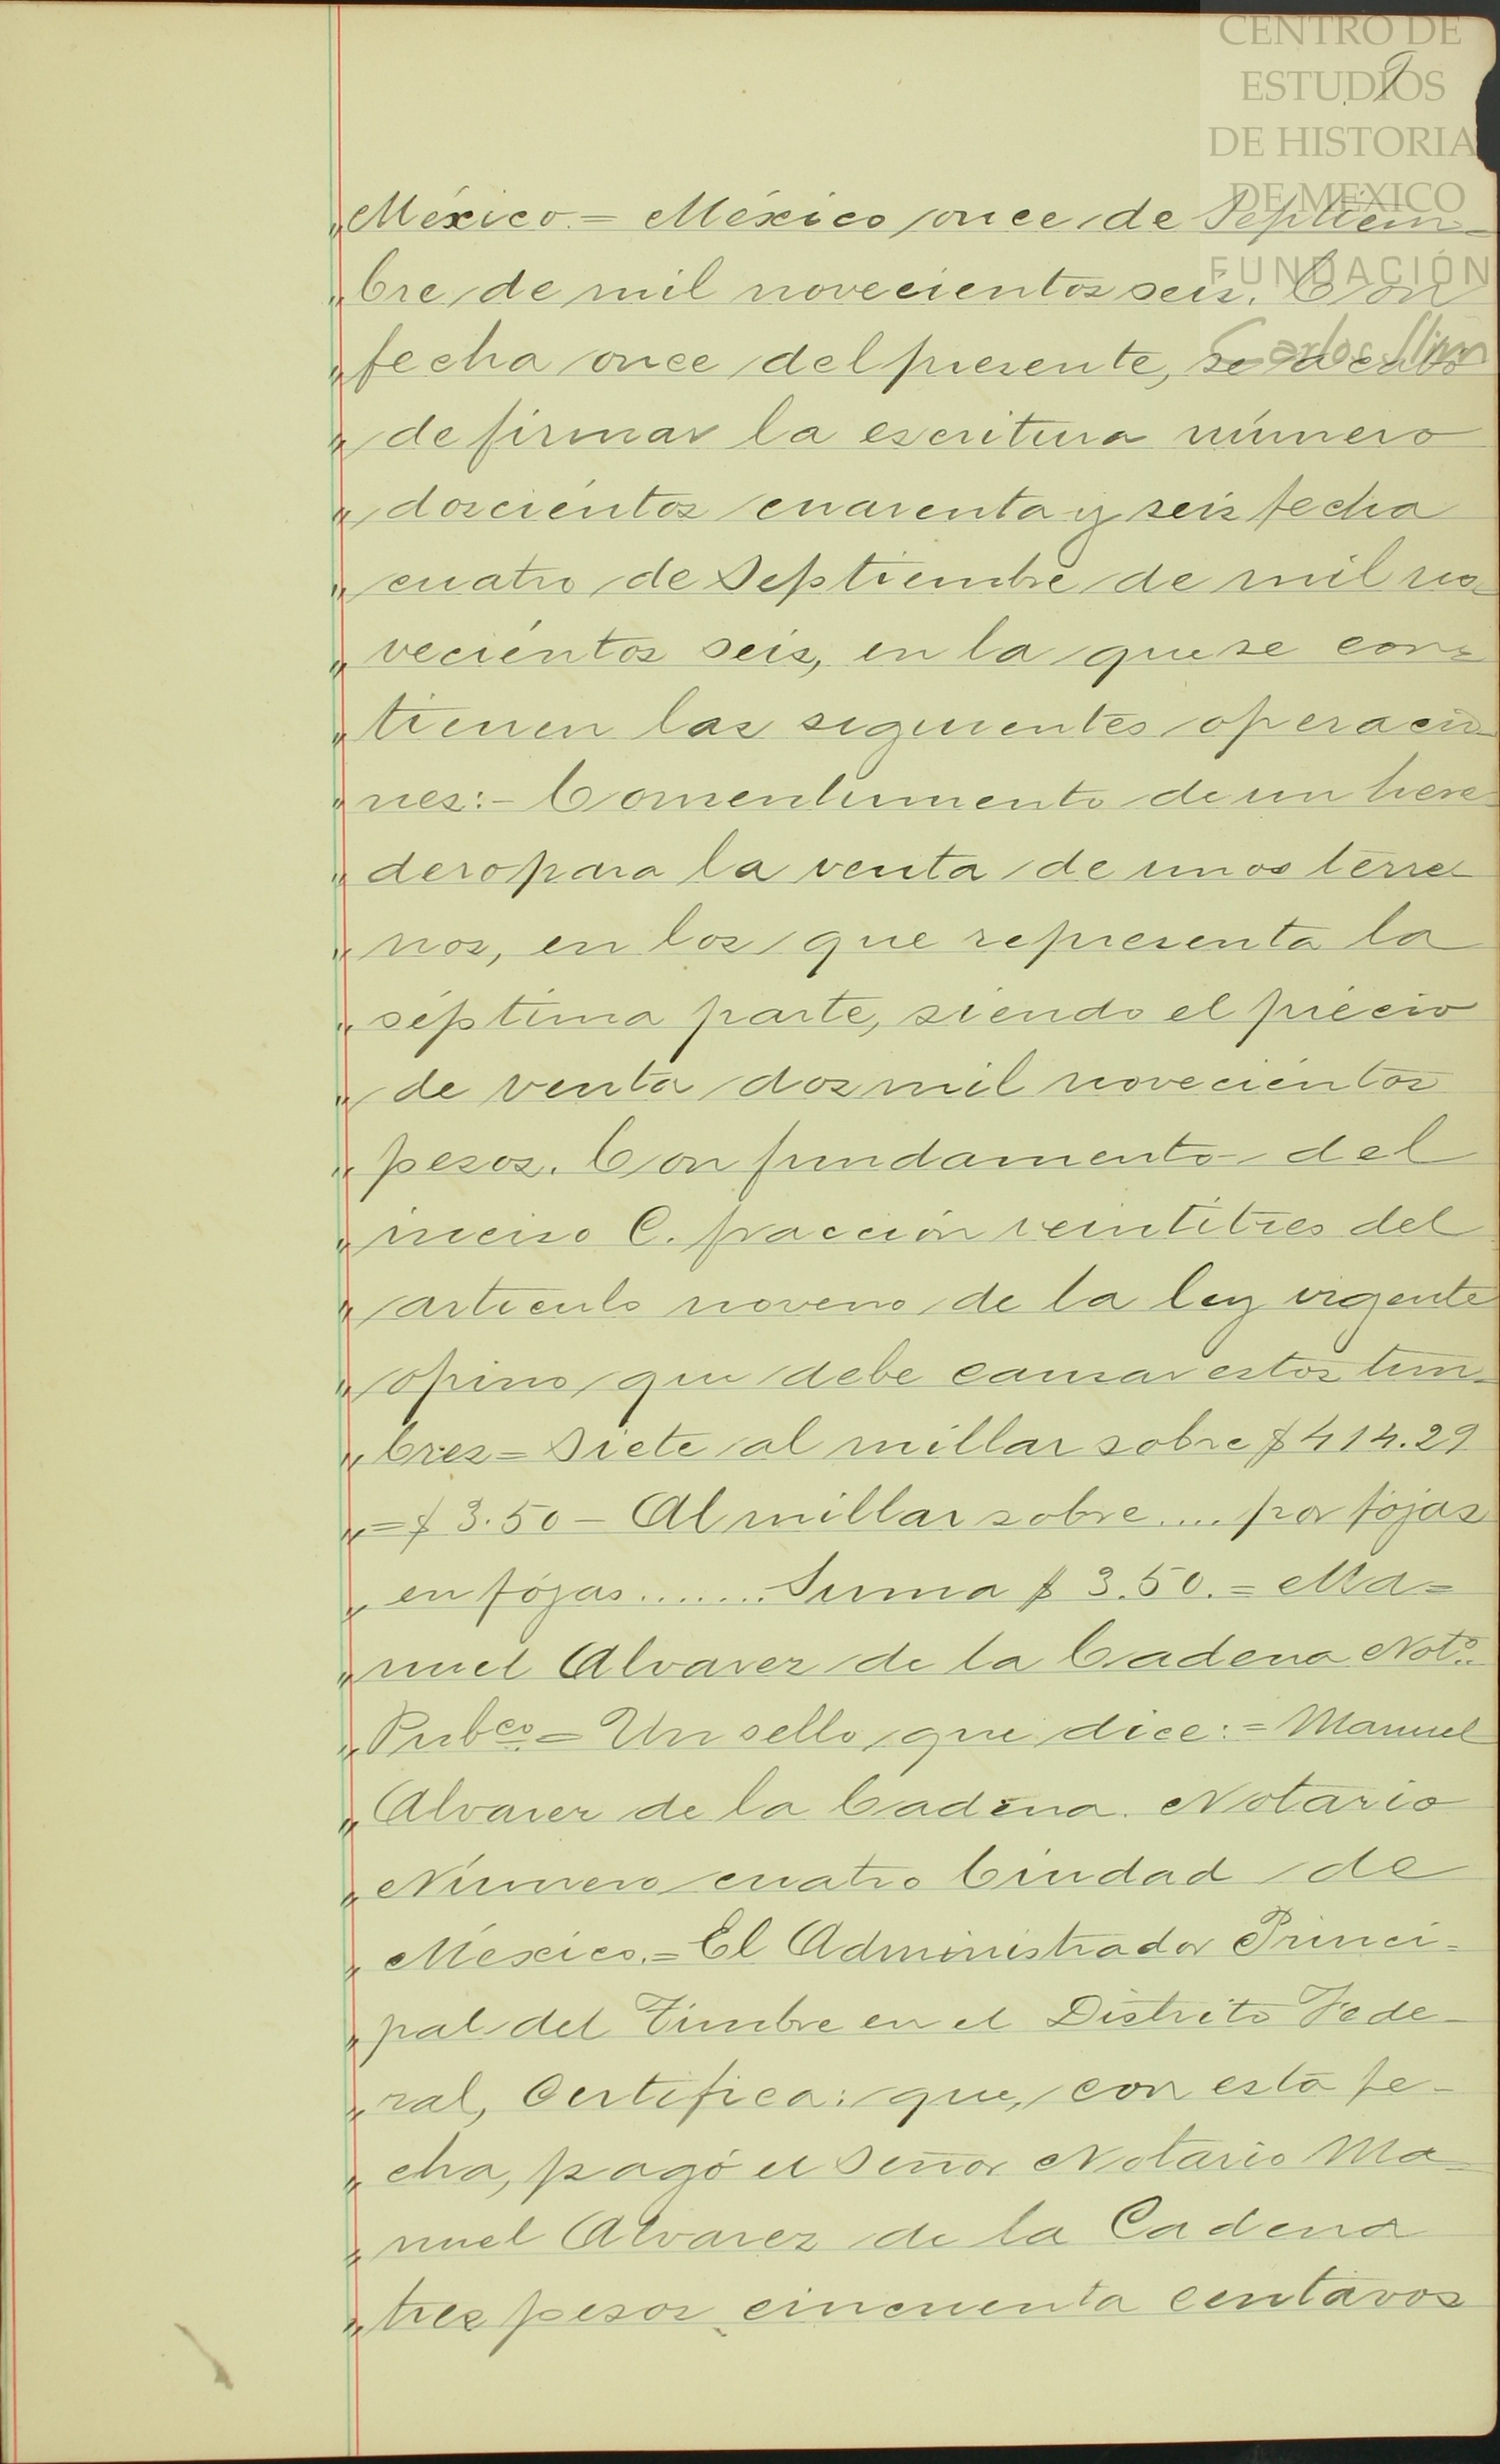 CENTRO DE
ESTUDIOS
DE HISTORIA
DE MÉXICO
FUNDACIÓN
Carlos Slim
9
„México.= México once de Septiem-
„bre de mil novecientos seis. Con
„fecha once del presente, se acabó
„de firmar la escritura número
„doscientos cuarenta y seis fecha
„cuatro de Septiembre de mil no-
„vecientos seis, en la que se con-
„tienen las siguientes operacio-
„nes:- Comentimiento de un here-
„dero para la venta de unos terre-
„nos, en los que representa la
„séptima parte, siendo el precio
„de venta dos mil novecientos
„pesos. Con fundamento del
„inciso C. fracción veintitres del
„articulo noveno de la ley vigente
„opino que debe causar estos tim-
„bres= Siete al millar sobre $414.29
„=$3.50 - Al millar sobre.... por fojas
„en fójas....... Suma $3.50.= Ma=
„nuel Alvarez de la Cadena Not.º
„Pub.co= Un sello que dice:= Manuel
„Alvarez de la Cadena. Notario
„Número cuatro Ciudad de
„México.= El Administrador Princi-
„pal del Timbre en el Distrito Fede-
„ral, Certifica: que, con esta fe-
„cha, pagó el Señor Notario Ma-
„nuel Alvarez de la Cadena
„tres pesos cincuenta centavos